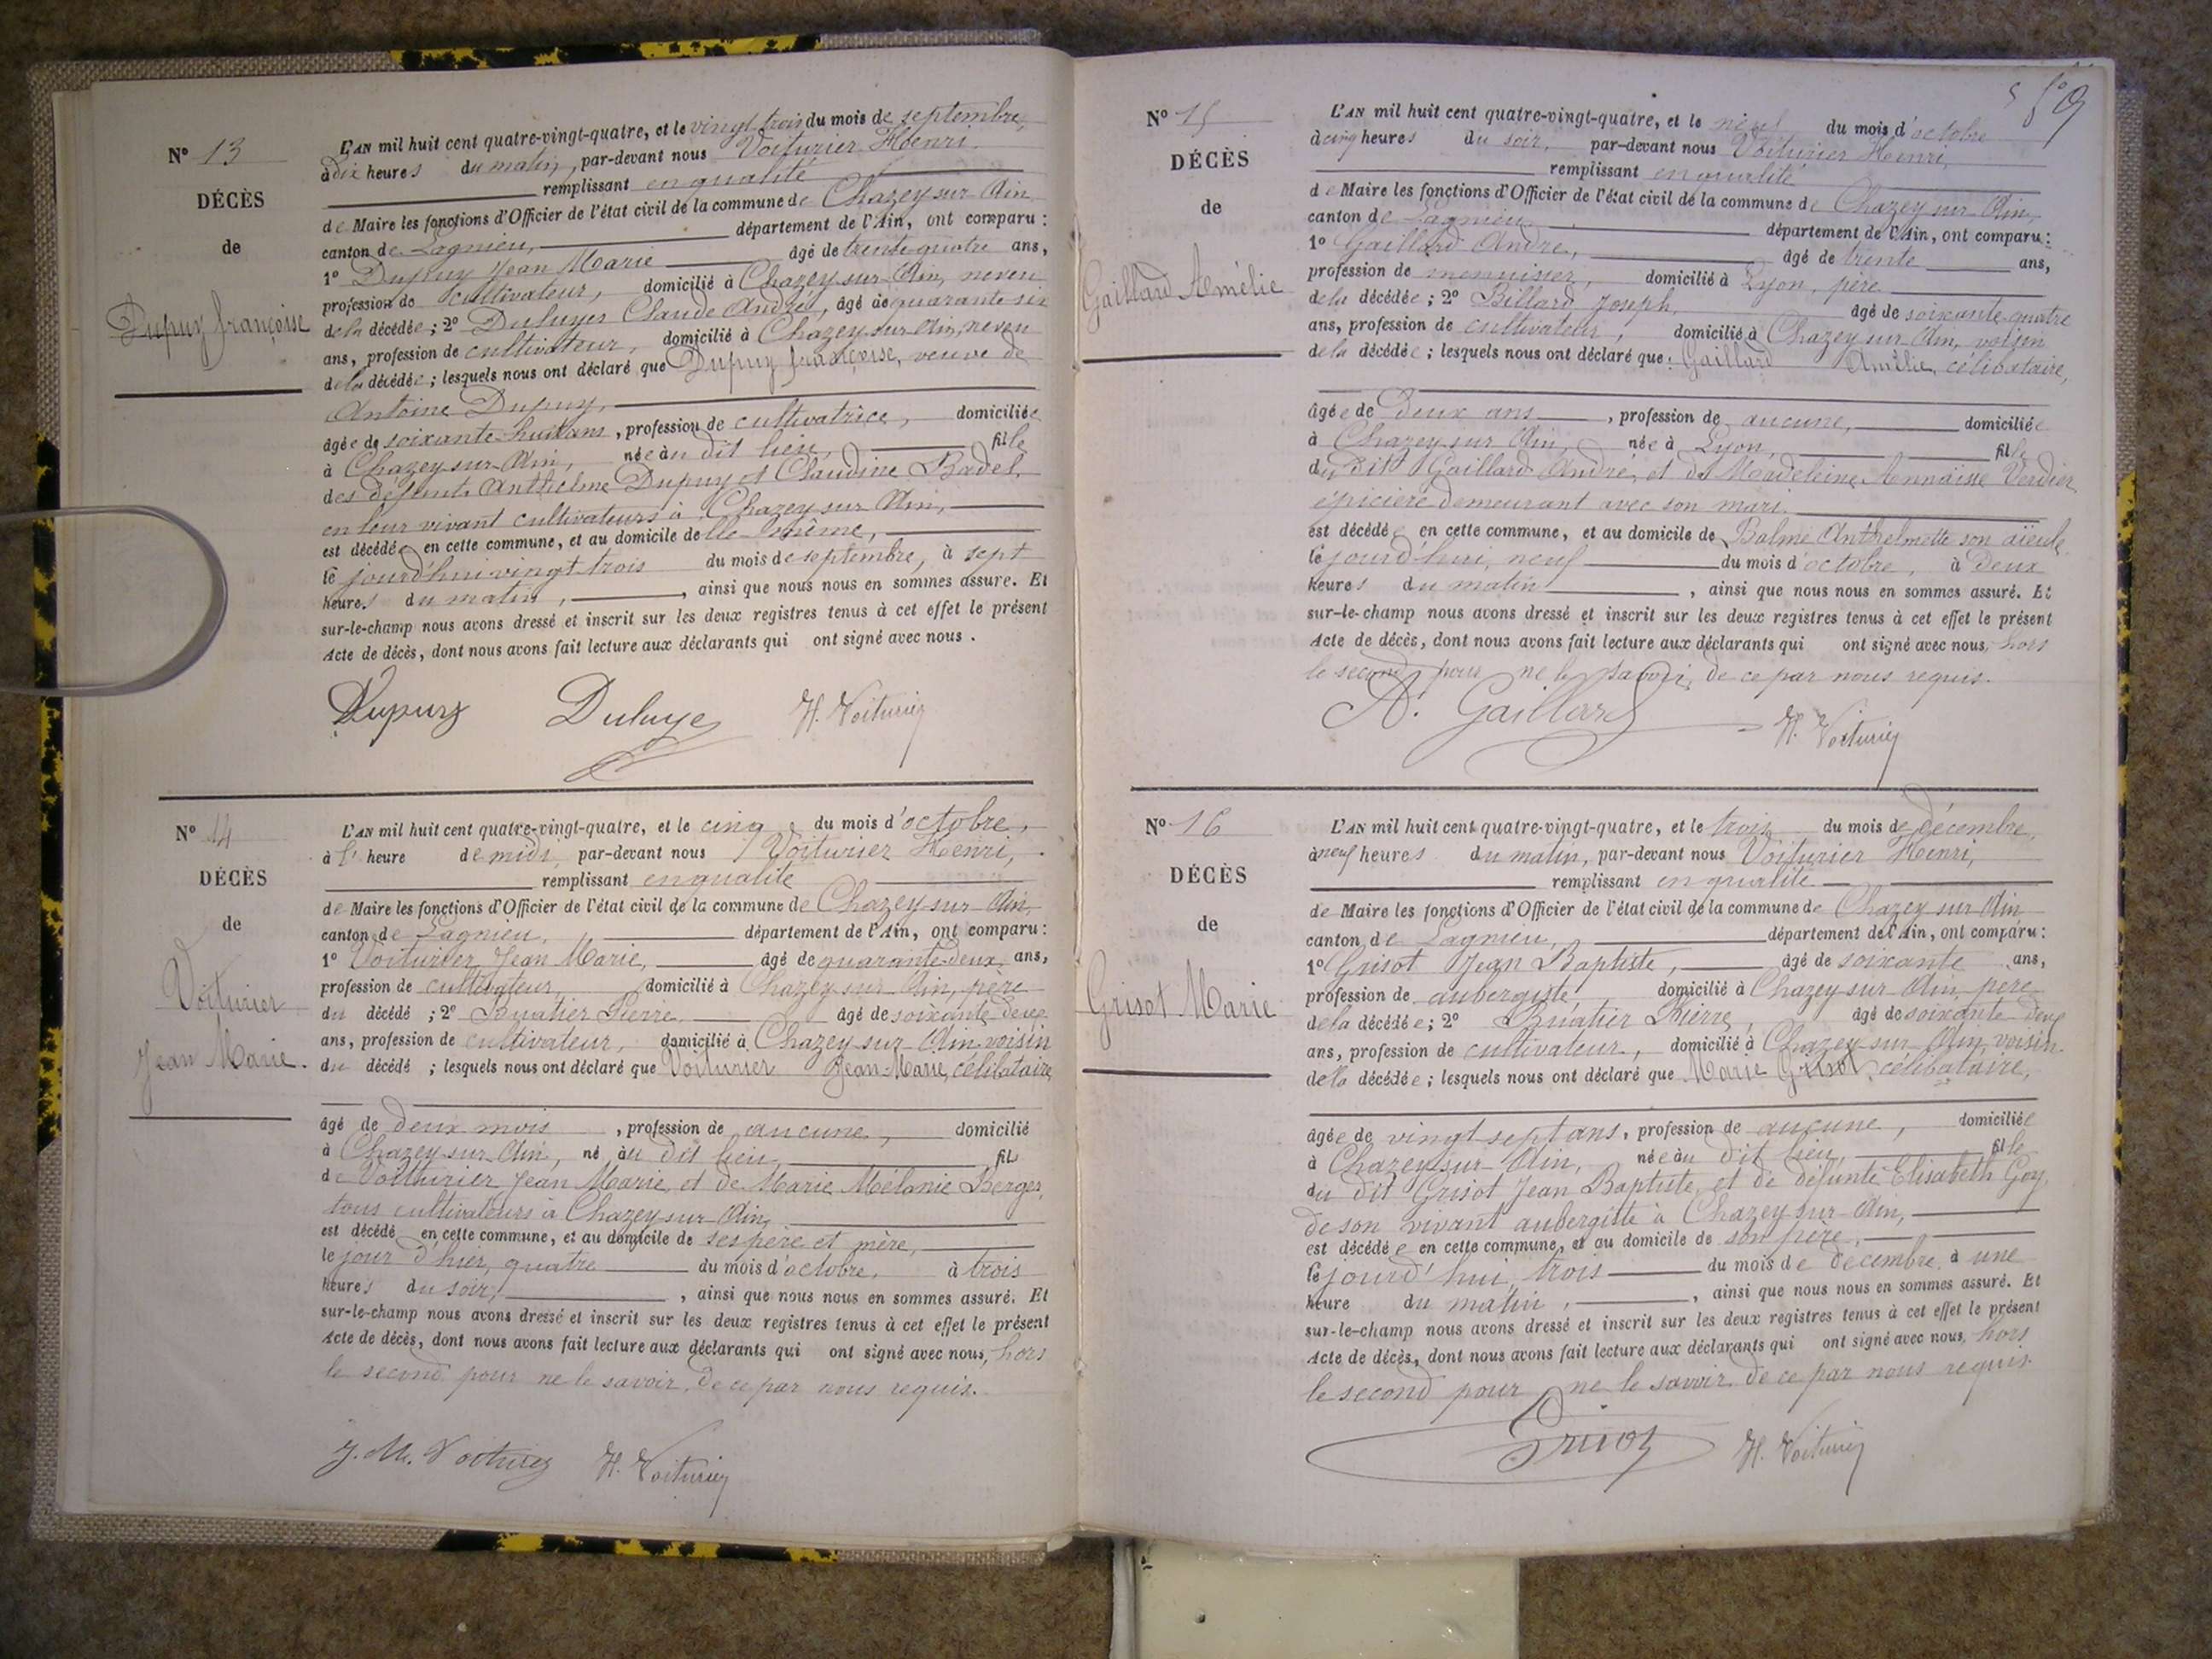 N° 13
DÉCÈS
de
Dupuy françoise
L'AN mil huit cent quatre-vingt-quatre, et le vingt trois du mois de septembre,
à dix heures du matin, par-devant nous Voiturier Henri
remplissant en qualité
de Maire les fonctions d'Officier de l'état civil de la commune de Chazey-sur-Ain
canton de Lagnieu, département de l'Ain, ont comparu :
1° Dupuy Jean Marie âgé de trente quatre ans,
profession de cultivateur, domicilié à Chazey-sur-Ain, neveu
de la décédée ; 2° Duluyer Claude André, âgé de quarante six
ans, profession de cultivateur, domicilié à Chazey-sur-Ain, neveu
de la décédée ; lesquels nous ont déclaré que Dupuy françoise, veuve de
Antoine Dupuy,
âgée de soixante-huit ans, profession de cultivatrice, domiciliée
à Chazey-sur-Ain, née au dit lieu, fille
des défunts Anthelme Dupuy et Claudine Badel,
en leur vivant cultivateurs à Chazey-sur-Ain,
est décédée en cette commune, et au domicile de elle-même,
le jourd'hui vingt trois du mois de septembre, à sept
heures du matin, ainsi que nous nous en sommes assuré. Et
sur-le-champ nous avons dressé et inscrit sur les deux registres tenus à cet effet le présent
Acte de décès, dont nous avons fait lecture aux déclarants qui ont signé avec nous.
Dupuy Duluye H. Voiturier
N° 14
DÉCÈS
de
Voiturier
Jean Marie.
L'AN mil huit cent quatre-vingt-quatre, et le cinq du mois d'octobre,
à l' heure de midi, par-devant nous Voiturier Henri,
remplissant en qualité
de Maire les fonctions d'Officier de l'état civil de la commune de Chazey-sur-Ain,
canton de Lagnieu, département de l'Ain, ont comparu :
1° Voiturier Jean Marie, âgé de quarante-deux ans,
profession de cultivateur, domicilié à Chazey-sur-Ain, père
du décédé ; 2° Buatier Pierre âgé de soixante deux
ans, profession de cultivateur, domicilié à Chazey-sur-Ain voisin
du décédé ; lesquels nous ont déclaré que Voiturier Jean-Marie, célibataire
âgé de deux mois, profession de aucune, domicilié
à Chazey-sur-Ain, né au dit lieu, fils
de Voiturier Jean Marie, et de Marie Mélanie Berger,
tous cultivateurs à Chazey-sur-Ain,
est décédé en cette commune, et au domicile de ses père et mère,
le jour d'hier, quatre du mois d'octobre, à trois
heures du soir, ainsi que nous nous en sommes assuré. Et
sur-le-champ nous avons dressé et inscrit sur les deux registres tenus à cet effet le présent
Acte de décès, dont nous avons fait lecture aux déclarants qui ont signé avec nous, hors
le second pour ne le savoir, de ce par nous requis.
J. M. Voiturier H. Voiturier
509
N° 15
DÉCÈS
de
Gaillard Amélie
L'AN mil huit cent quatre-vingt-quatre, et le neuf du mois d'octobre
à cinq heures du soir, par-devant nous Voiturier Henri,
remplissant en qualité
de Maire les fonctions d'Officier de l'état civil de la commune de Chazey-sur-Ain,
canton de Lagnieu, département de l'Ain, ont comparu :
1° Gaillard André, âgé de trente ans,
profession de menuisier, domicilié à Lyon, père
de la décédée ; 2° Billard Joseph, âgé de soixante-quatre
ans, profession de cultivateur, domicilié à Chazey-sur-Ain, voisin
de la décédée ; lesquels nous ont déclaré que : Gaillard Amélie, célibataire,
âgée de deux ans, profession de aucune, domiciliée
à Chazey-sur-Ain, née à Lyon, fille
du dit Gaillard André, et de Madeleine Annaïsse Verdier
épicière demeurant avec son mari.
est décédée en cette commune, et au domicile de Balme Anthelmette son aïeule,
le jourd'hui, neuf du mois d'octobre, à deux
heures du matin, ainsi que nous nous en sommes assuré. Et
sur-le-champ nous avons dressé et inscrit sur les deux registres tenus à cet effet le présent
Acte de décès, dont nous avons fait lecture aux déclarants qui ont signé avec nous, hors
le second pour ne le savoir, de ce par nous requis.
A. Gaillard H. Voiturier
N° 16
DÉCÈS
de
Grisot Marie
L'AN mil huit cent quatre-vingt-quatre, et le trois du mois de décembre
à neuf heures du matin, par-devant nous Voiturier Henri,
remplissant en qualité
de Maire les fonctions d'Officier de l'état civil de la commune de Chazey-sur-Ain
canton de Lagnieu, département de l'Ain, ont comparu :
1° Grisot Jean Baptiste, âgé de soixante ans,
profession de aubergiste, domicilié à Chazey-sur-Ain, père
de la décédée ; 2° Buatier Pierre, âgé de soixante deux
ans, profession de cultivateur, domicilié à Chazey-sur-Ain, voisin
de la décédée ; lesquels nous ont déclaré que Marie Grisot célibataire,
âgée de vingt sept ans, profession de aucune, domiciliée
à Chazey-sur-Ain, née au dit lieu, fille
du dit Grisot Jean Baptiste, et de défunte Elisabeth Goy
de son vivant aubergiste à Chazey-sur-Ain,
est décédée en cette commune, et au domicile de son père,
le jourd'hui, trois du mois de décembre, à une
heure du matin, ainsi que nous nous en sommes assuré. Et
sur-le-champ nous avons dressé et inscrit sur les deux registres tenus à cet effet le présent
Acte de décès, dont nous avons fait lecture aux déclarants qui ont signé avec nous, hors
le second pour ne le savoir de ce par nous requis.
Grisot H. Voiturier